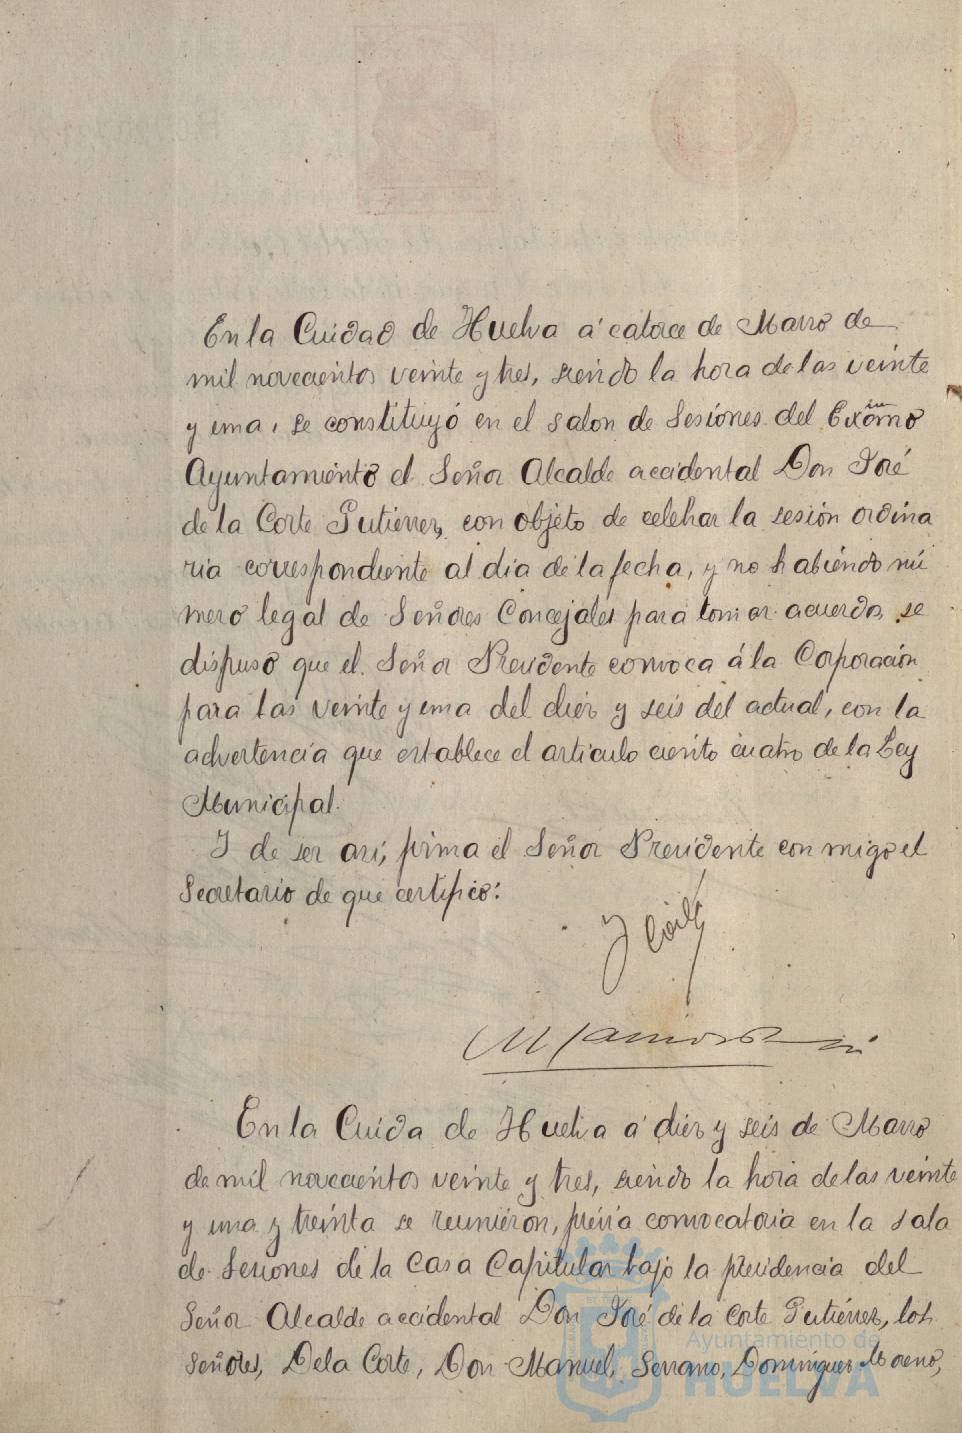 En la Cuidad de Huelva á catorce de Marzo de
mil novecientos veinte y tres, siendo la hora de las veinte
y una, se constituyó en el salon de Sesiones del Excmo
Ayuntamiento el Señor Alcalde accidental Don José
de la Corte Gutiérrez, con objeto de celebrar la sesión ordina
ria correspondiente al dia de la fecha, y no habiendo nú
mero legal de Señores Concejales para tomar acuerdo, se
dispuso que el Señor Presidente convoca á la Corporación
para las veinte y una del diez y seis del actual, con la
advertencia que establece el articulo ciento cuatro de la Ley
Municipal.
Y de ser asi, firma el Señor Presidente con migo el
Secretario de que certifico:
En la Cuida de Huelva á diez y seis de Marzo
de mil novecientos veinte y tres, siendo la hora de las veinte
y una y treinta se reunieron, prévia convocatoria en la sala
de Sesiones de la Casa Capitular bajo la presidencia del
Señor Alcalde accidental Don José de la Corte Gutiérrez, los
Señores, De la Corte, Don Manuel, Serrano, Dominguez Moreno,
Ayuntamiento de
HUELVA